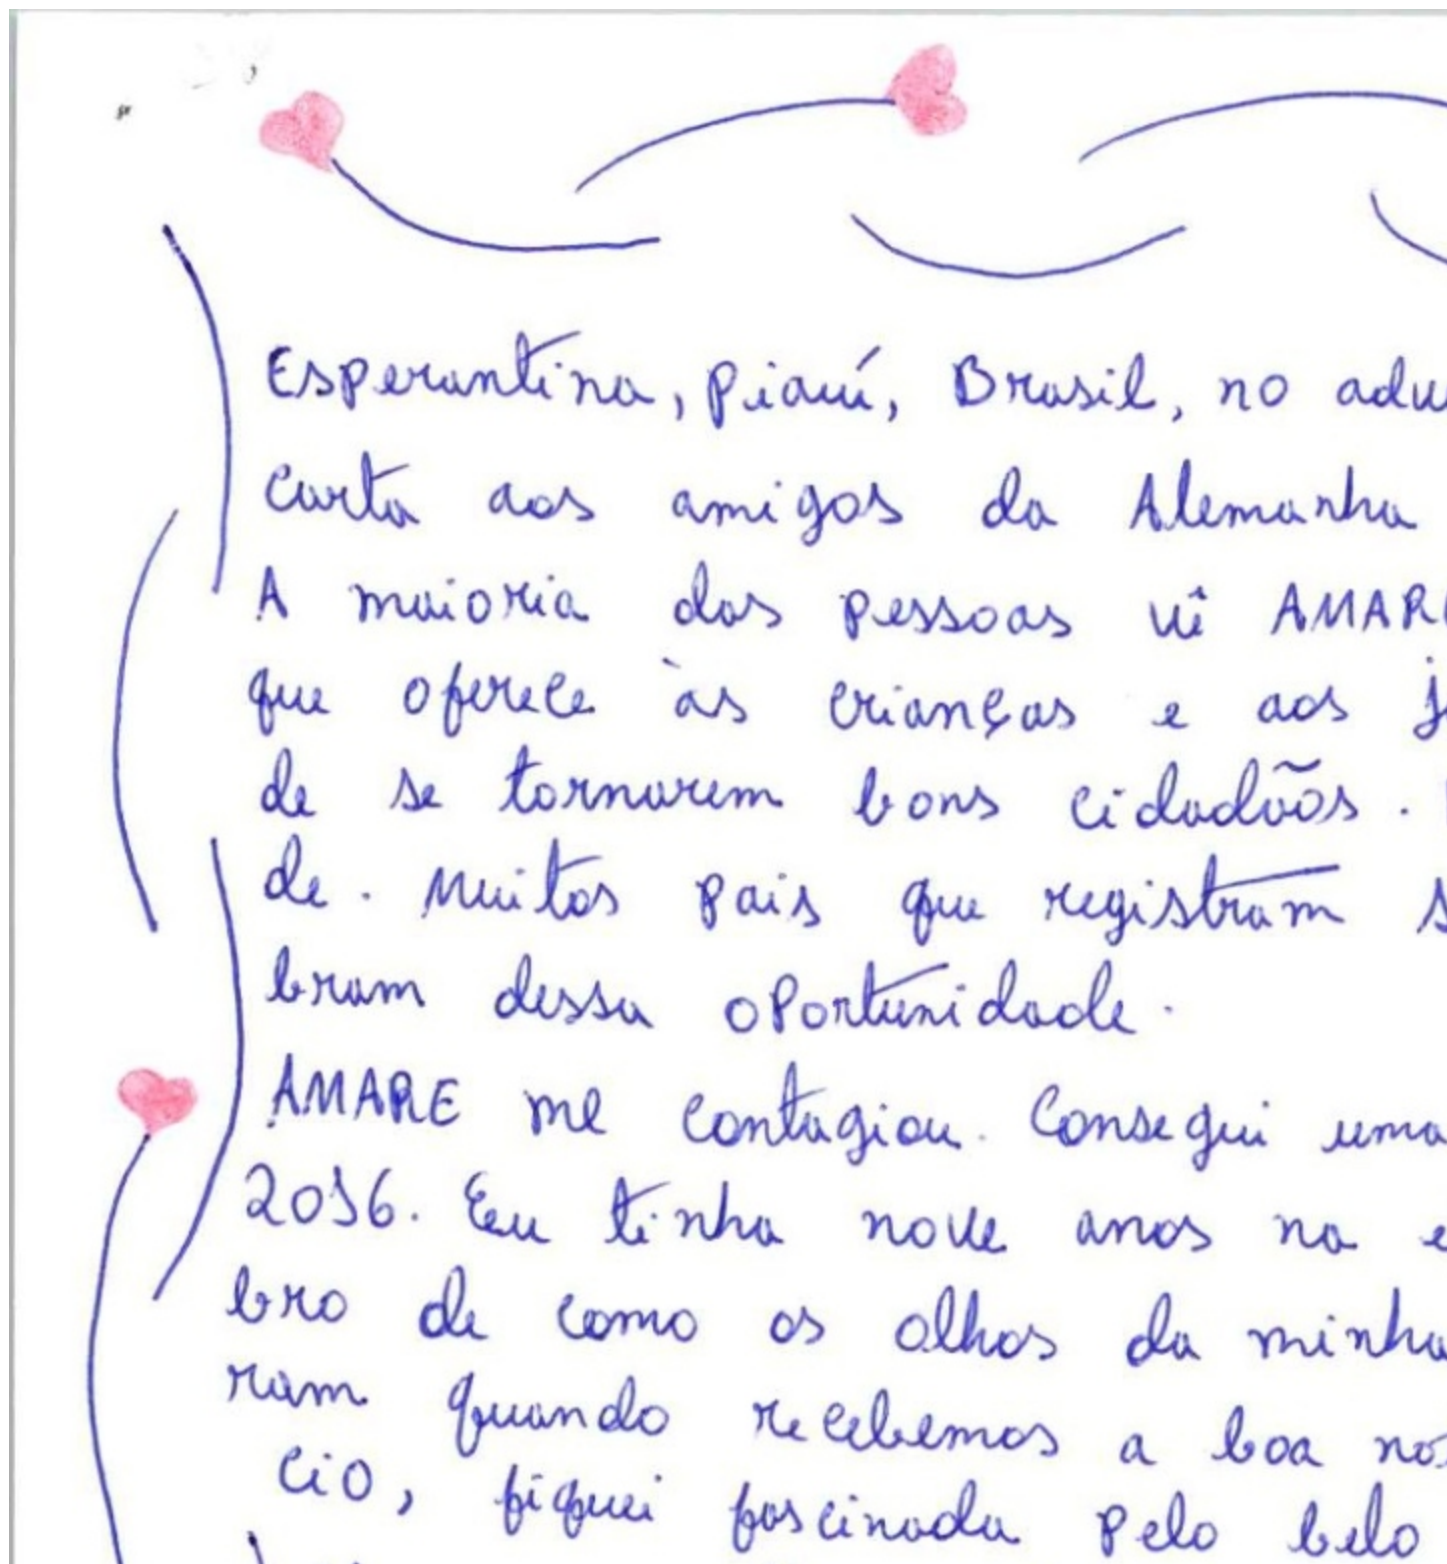 Esperantina, Piauí, Brasil, no adve
carta aos amigos da Alemanha
A maioria das pessoas vê AMARE
que oferece às crianças e aos j
de se tornarem bons cidadãos.
de. Muitos pais que registram s
bram dessa oportunidade.
AMARE me contagiou. Consegui uma
2016. Eu tinha nove anos na e
bro de como os olhos da minha
ram quando recebemos a boa no
cio, fiquei fascinada pelo belo